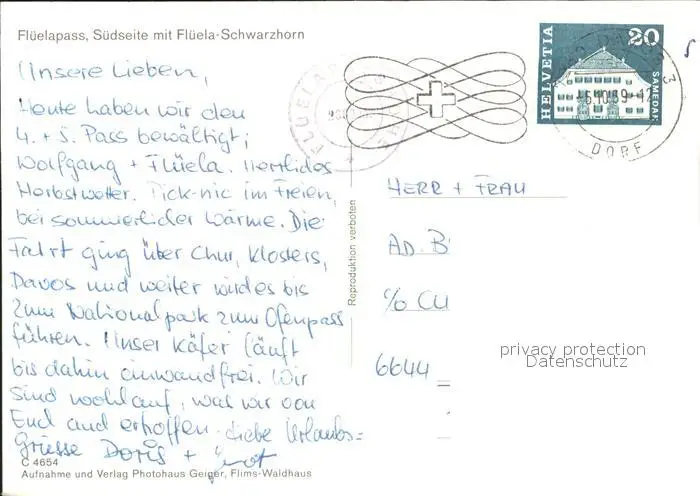 Flüelapass, Südseite mit Flüela-Schwarzhorn
Unsere Lieben,
Heute haben wir den
4. + 5. Pass bewältigt;
Wolfgang + Flüela. Herrliches
Herbstwetter. Pick-nic im Freien,
bei sommerlicher Wärme. Die
Fahrt ging über Chur, Klosters,
Davos und weiter wird es bis
zum Nationalpark zum Ofenpass
führen. Unser Käfer läuft
bis dahin einwandfrei. Wir
sind wohlauf, was wir von
Euch auch erhoffen. Liebe Urlaubs=
Grüsse Doris +
C 4654
Aufnahme und Verlag Photohaus Geiger, Flims-Waldhaus
Reproduktion verboten
HELVETIA
20
SAMEDAN
DORF
HERR + FRAU
AD. B
c/o CU
6644
privacy protection
Datenschutz